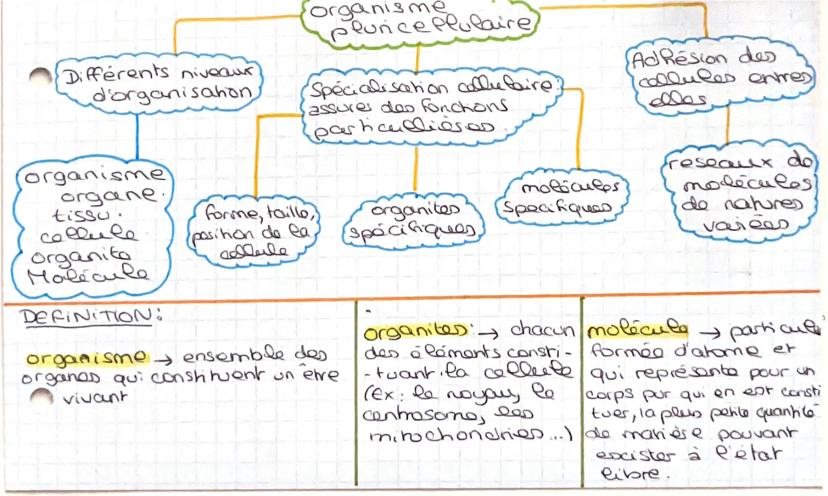 organisme
pluricellulaire
Différents niveaux
d'organisation
Spécialisation cellulaire:
assures des fonctions
particullières.
Adhésion des
cellules entres
elles
organisme
organe.
tissu.
cellule
organite
Molécule
forme, taille,
position de la
cellule
organites
spécifiques
molécules
specifiques
reseaux de
molécules
de natures
variées
DEFINITION:
organisme → ensemble des
organes qui constituent un être
vivant
organites: → chacun
des éléments consti-
-tuant la cellule
(Ex: le noyau, le
centrosome, les
mitochondries...)
molécule → particule
formée d'atome et
qui représente pour un
corps pur qui en est consti
tuer, la plus petite quantité
de matière pouvant
excister à l'état
libre.